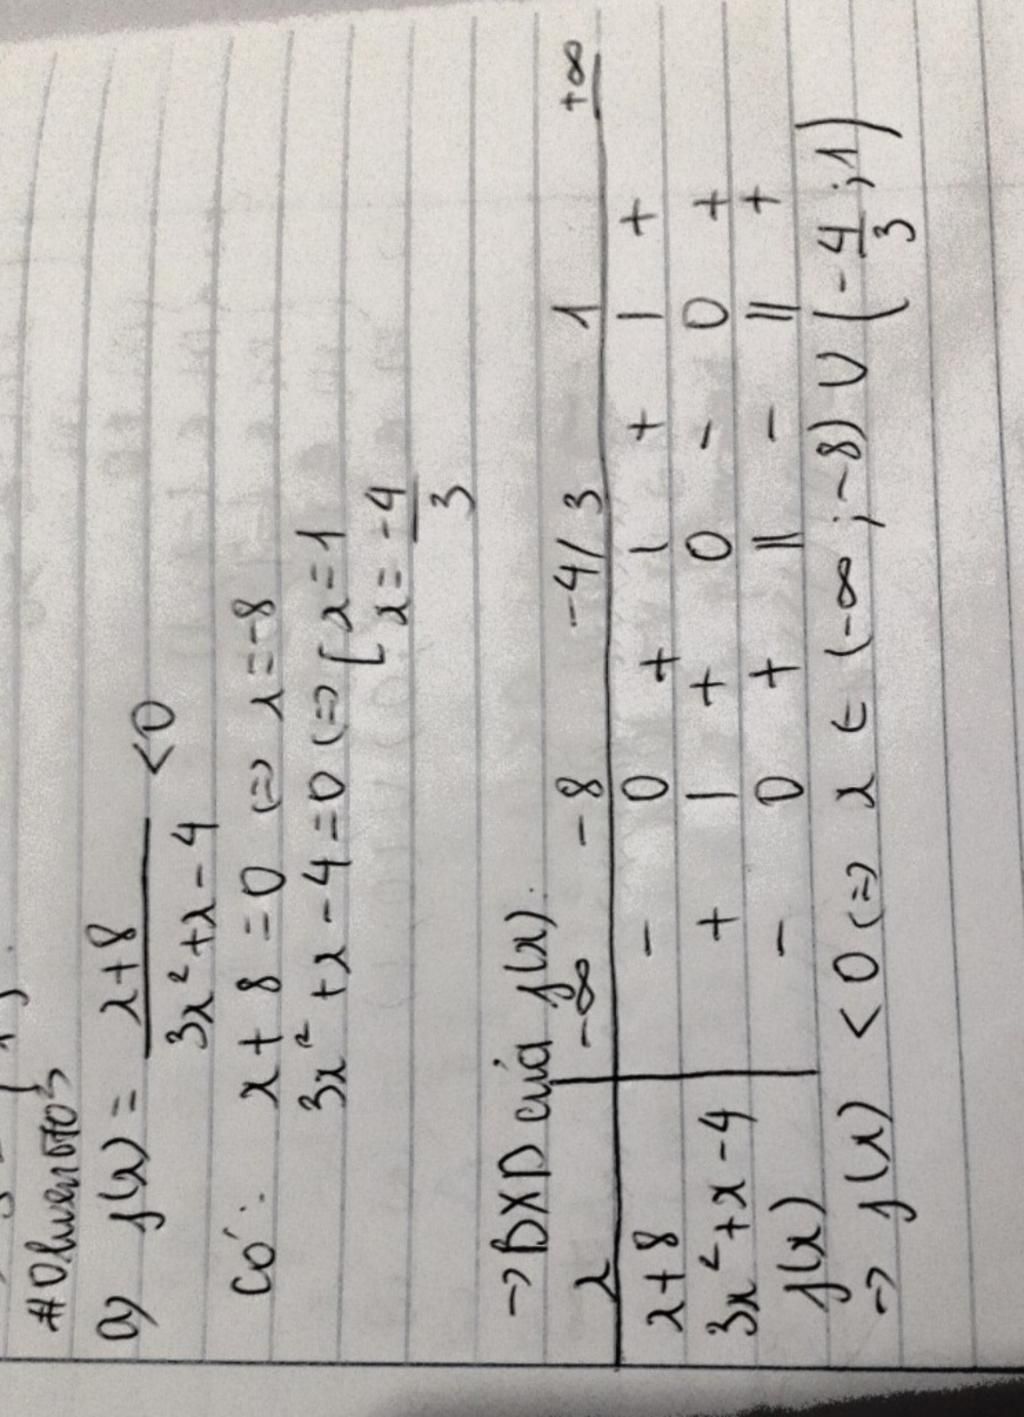 #Olwen5to3
a) f(x) = x+8 / 3x²+x-4 <0
Có: x+8=0 (=) x=-8
3x²+x-4=0 (=) [x=1
[x=-4/3
→ BXD của f(x):
x -∞ -8 -4/3 1 +∞
x+8 - 0 + | + | +
3x²+x-4 + | + 0 - 0 +
f(x) - 0 + || - || +
=> f(x) <0 (=) x ∈ (-∞;-8) ∪ (-4/3;1)